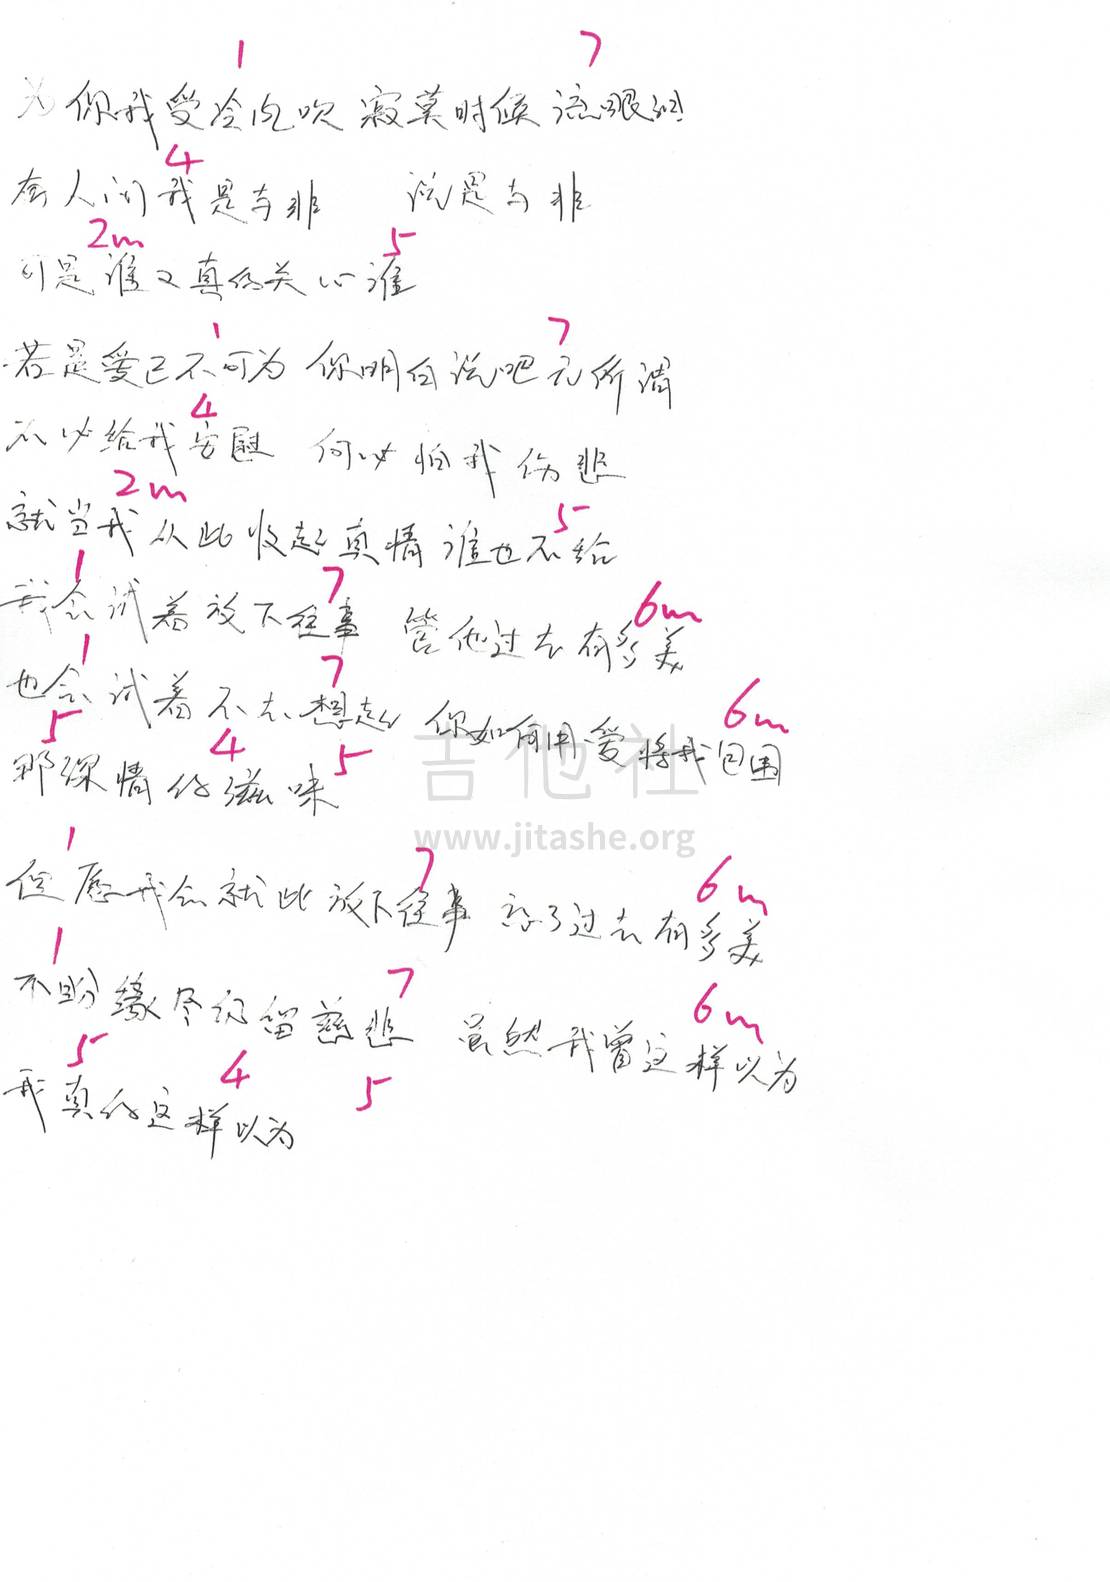 1 7
为你我受冷风吹 寂寞时候流眼泪
4
有人问我是与非 说是与非
2m 5
可是谁又真的关心谁
1 7
若是爱已不可为 你明白说吧无所谓
4
不必给我安慰 何必怕我伤悲
2m 5
就当我从此收起真情谁也不给
1 7 6m
我会试着放下往事 管他过去有多美
1 7 6m
也会试着不去想起 你如何用爱将我包围
5 4 5
那深情的滋味
吉他社
www.jitashe.org
1 7 6m
但愿我会就此放下往事 忘了过去有多美
1 7 6m
不盼缘尽仍留慈悲 虽然我曾这样以为
5 4 5
我真的这样以为